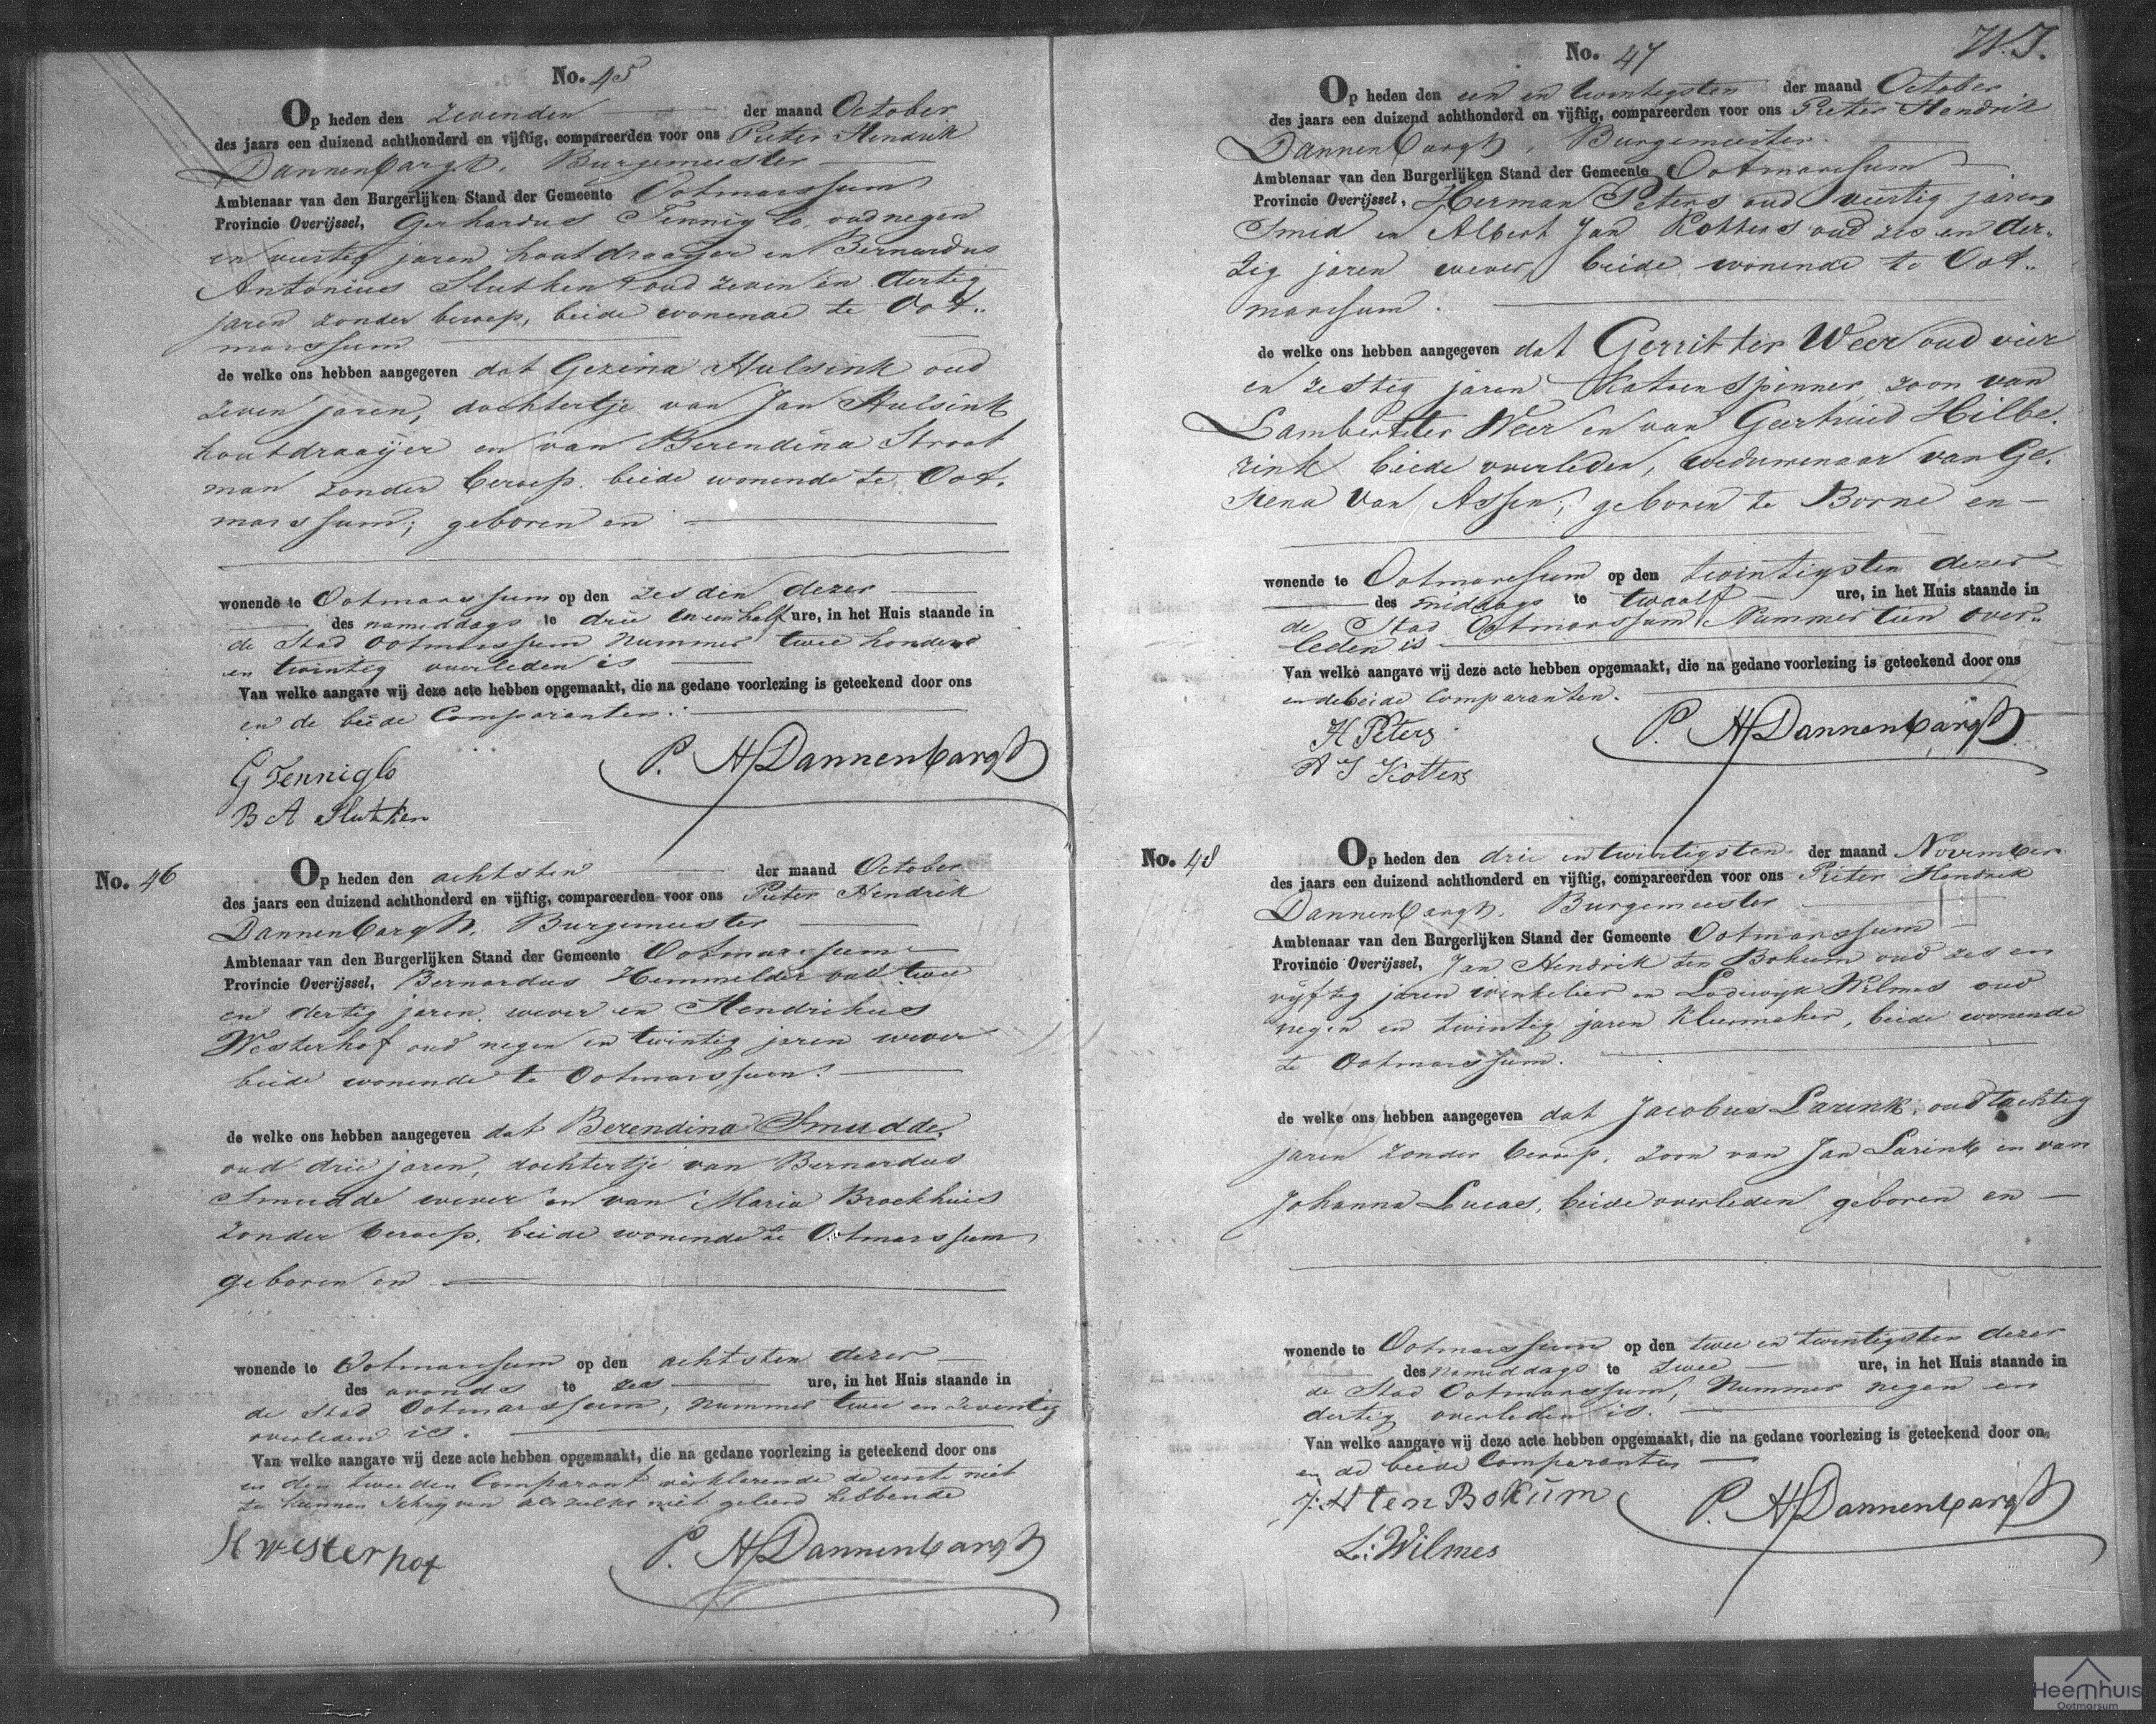 No. 45
Op heden den zevenden der maand October
des jaars een duizend achthonderd en vijftig, compareerden voor ons Pieter Hendrik
Dannenbargh, Burgemeester
Ambtenaar van den Burgerlijken Stand der Gemeente Ootmarssum
Provincie Overijssel, Gerhardus Tenniglo, oud negen
en veertig jaren houtdraayer en Bernardus
Antonius Sluthken oud zeven en dertig
jaren zonder beroep, beide wonende te Oot-
marssum
de welke ons hebben aangegeven dat Gezina Hulsink oud
zeven jaren, dochtertje van Jan Hulsink
houtdraaijer en van Berendina Stroot
man zonder beroep, beide wonende te Oot-
marssum; geboren en
wonende te Ootmarssum op den zesden dezer
des nameddags te drie en een half ure, in het Huis staande in
de Stad Ootmarssum Nummer twee honderd
en twintig overleden is
Van welke aangave wij deze acte hebben opgemaakt, die na gedane voorlezing is geteekend door ons
en de beide Comparanten.
G Tenniglo
P. H Dannenbargh
B A Sluthken
No. 46
Op heden den achtsten der maand October
des jaars een duizend achthonderd en vijftig, compareerden voor ons Pieter Hendrik
Dannenbargh, Burgemeester
Ambtenaar van den Burgerlijken Stand der Gemeente Ootmarssum
Provincie Overijssel, Bernardus Hemmelder oud twee
en dertig jaren, wever en Hendrikus
Westerhof oud negen en twintig jaren wever
beide wonende te Ootmarssum.
de welke ons hebben aangegeven dat Berendina Smudde,
oud drie jaren, dochtertje van Bernardus
Smudde wever en van Maria Broekhuis
zonder beroep, beide wonende te Ootmarssum
geboren en
wonende te Ootmarssum op den achtsten dezer
des avonds te zes ure, in het Huis staande in
de Stad Ootmarssum, Nummer twee en zeventig
overleden is.
Van welke aangave wij deze acte hebben opgemaakt, die na gedane voorlezing is geteekend door ons
en den tweeden Comparant verklarende de eerste niet
te kunnen schryven als zulks niet geleerd hebbende
H Westerhof
P. H Dannenbargh
No. 47
Op heden den een en twintigsten der maand October
des jaars een duizend achthonderd en vijftig, compareerden voor ons Pieter Hendrik
Dannenbargh, Burgemeester.
Ambtenaar van den Burgerlijken Stand der Gemeente Ootmarssum
Provincie Overijssel, Herman Peters oud veertig jaren
Smid en Albert Jan Kotters oud zes en der-
tig jaren wever, beide wonende te Oot-
marssum.
de welke ons hebben aangegeven dat Gerrit ter Weer oud vier
en zestig jaren Katoenspinner, zoon van
Lambert ter Weer en van Geertruid Hilbe-
rink beide overleden, weduwenaar van Ge-
siena van Assen; geboren te Borne en
wonende te Ootmarssum op den twintigsten dezer
des middags te twaalf ure, in het Huis staande in
de Stad Ootmarssum Nummer tien over-
leden is
Van welke aangave wij deze acte hebben opgemaakt, die na gedane voorlezing is geteekend door ons
en de beide Comparanten.
H Peters
P. H Dannenbargh
A J Kotters
No. 48
Op heden den drie en twintigsten der maand November
des jaars een duizend achthonderd en vijftig, compareerden voor ons Pieter Hendrik
Dannenbargh, Burgemeester
Ambtenaar van den Burgerlijken Stand der Gemeente Ootmarssum
Provincie Overijssel, Jan Hendrik ten Bokum oud zes en
vyftig jaren winkelier en Lodewyk Wilmes oud
negen en twintig jaren Kleermaker, beide wonende
te Ootmarssum.
de welke ons hebben aangegeven dat Jacobus Larink, oud tachtig
jaren zonder beroep, zoon van Jan Larink en van
Johanna Lucas, beide overleden geboren en
wonende te Ootmarssum op den twee en twintigsten dezer
des nameddags te twee ure, in het Huis staande in
de Stad Ootmarssum, Nummer negen en
dertig overleden is.
Van welke aangave wij deze acte hebben opgemaakt, die na gedane voorlezing is geteekend door ons
en de beide Comparanten
J: H ten Bokum
P. H Dannenbargh
L: Wilmes
Heemhuis
Ootmarsum